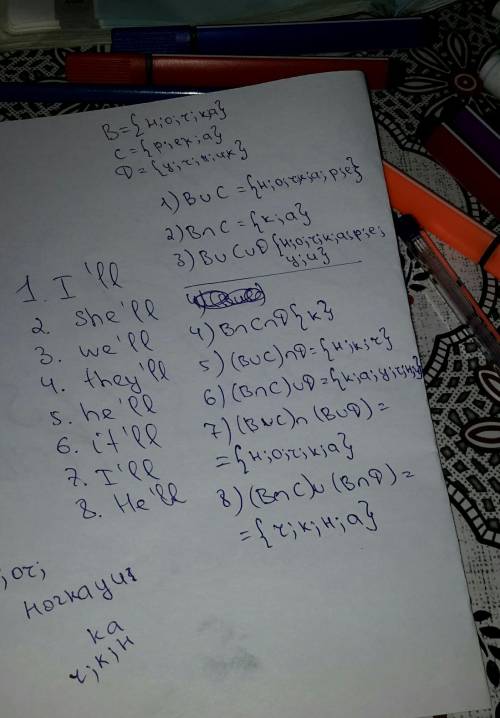 B={н;о;ч;ка}
C={р;ек;а}
D={у;ч;н;ик}
1) B∪C={н;о;ч;к;а;р;е}
2) B∩C={к;а}
3) B∪C∪D{н;о;ч;к;а;р;е;
у;и}
4) B∩C∩D{к}
5) (B∪C)∩D={н;к;ч}
6) (B∩C)∪D={к;а;у;ч;н;и}
7) (B∪C)∩(B∪D)=
={н;о;ч;к;а}
8) (B∩C)∪(B∩D)=
={ч;к;н;а}
1. I'll
2. she'll
3. we'll
4. they'll
5. he'll
6. it'll
7. I'll
8. He'll
;оч;
ночкауи
ка
ч;к;н